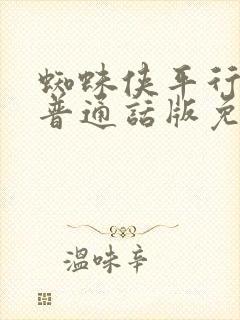 蜘蛛侠平行
普通話版免
温味辛